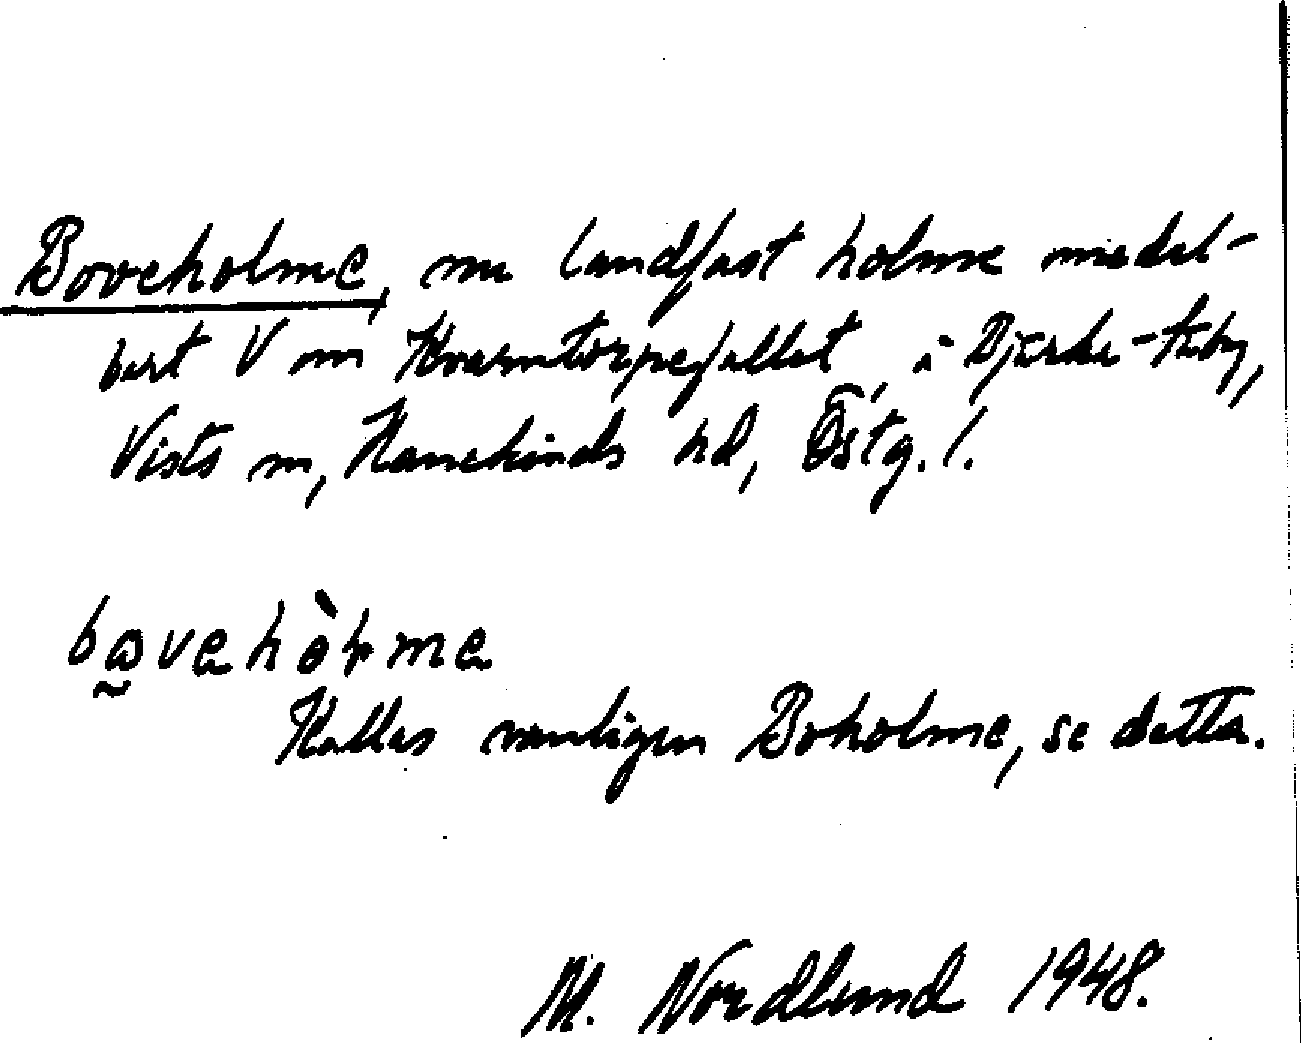 Boveholme, nu landfast holme medel-
bart V om Kvarntorpefallet, i Bjärka-Säby,
Vists sn, Hanekinds hd, Östg. l.
bavehòlme
Kallas vanligen Boholme, se detta.
M. Nordlund 1948.